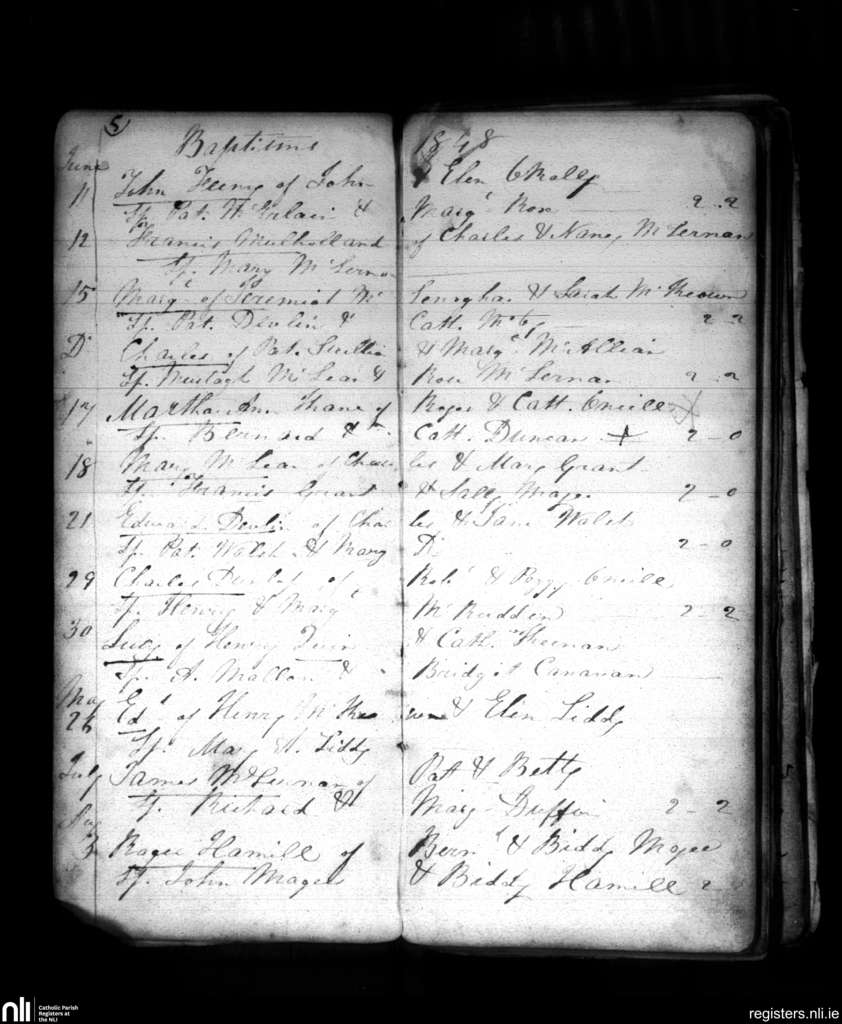 5
Baptisms 1848
June
11 John Feeny of John & Elen O'Rally
Sp. Pat. & Margt Rox 2..2
12 Francis Mulholland of Charles & Nancy McLernan
Sp. Mary McLernan
15 Margt of Jeremiah McGenogha & Sarah McKeown
Sp. Pat. Devlin & Cath. 2..2
Do Charles of Pat. Scullin & Margt McAllian
Sp. Murtagh McLean & Rose McLernan 2..2
17 Martha Ann Shane of Roger & Cath. Oneill
Sp. Bernard & Cath. Duncan 2-0
18 Mary McLean of Charles & Mary Grant
Sp. Francis Grant & Sally Magee 2-0
21 Edward Devlin of Charles & Jane Walsh
Sp. Pat. Walsh & Mary Do 2-0
29 Charles of Robt & Peggy Oneill
Sp. Henry & Margt McRudden 2-2
30 Lucy of Henry Quin & Cath. Keenan
Sp. A. Mallon & Bridgit Canavan
May
26 Edd of Henry McKeown & Elen Liddy
Sp. Mary A. Liddy
July James McLernan of Pat & Betty
Sp. Richard & Mary Duffin 2-2
Aug
3 Roger Hamill of Bernd & Biddy Magee
Sp. John Magee & Biddy Hamill 2
nli
Catholic Parish
Registers at
the NLI
registers.nli.ie